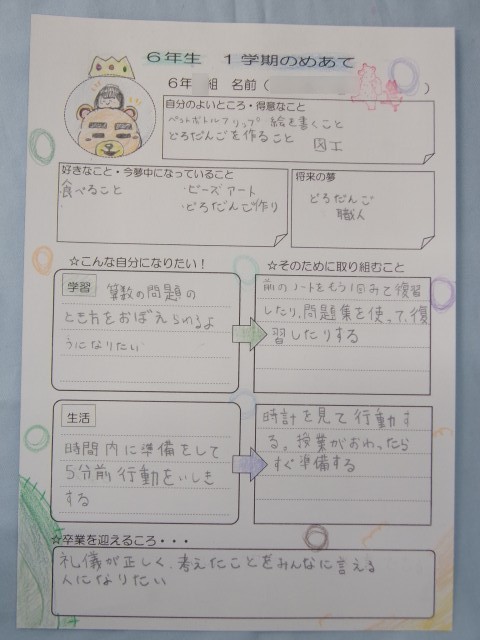 6年生　1学期のめあて
6年　組　名前（　）
自分のよいところ・得意なこと
ペットボトルフリップ 絵を書くこと
どろだんごを作ること　図工
好きなこと・今夢中になっていること
・食べること　・ビーズアート
・　・どろだんご作り
将来の夢
どろだんご
職人
☆こんな自分になりたい！
学習　算数の問題の
とき方をおぼえられるよ
うになりたい
☆そのために取り組むこと
前のノートをもう1回みて復習
したり、問題集を使って、復
習したりする
生活
時間内に準備をして
5分前行動をいしき
する
時計を見て行動す
る。授業がおわったら
すぐ準備する
☆卒業を迎えるころ・・・
礼儀が正しく、考えたことをみんなに言える
人になりたい